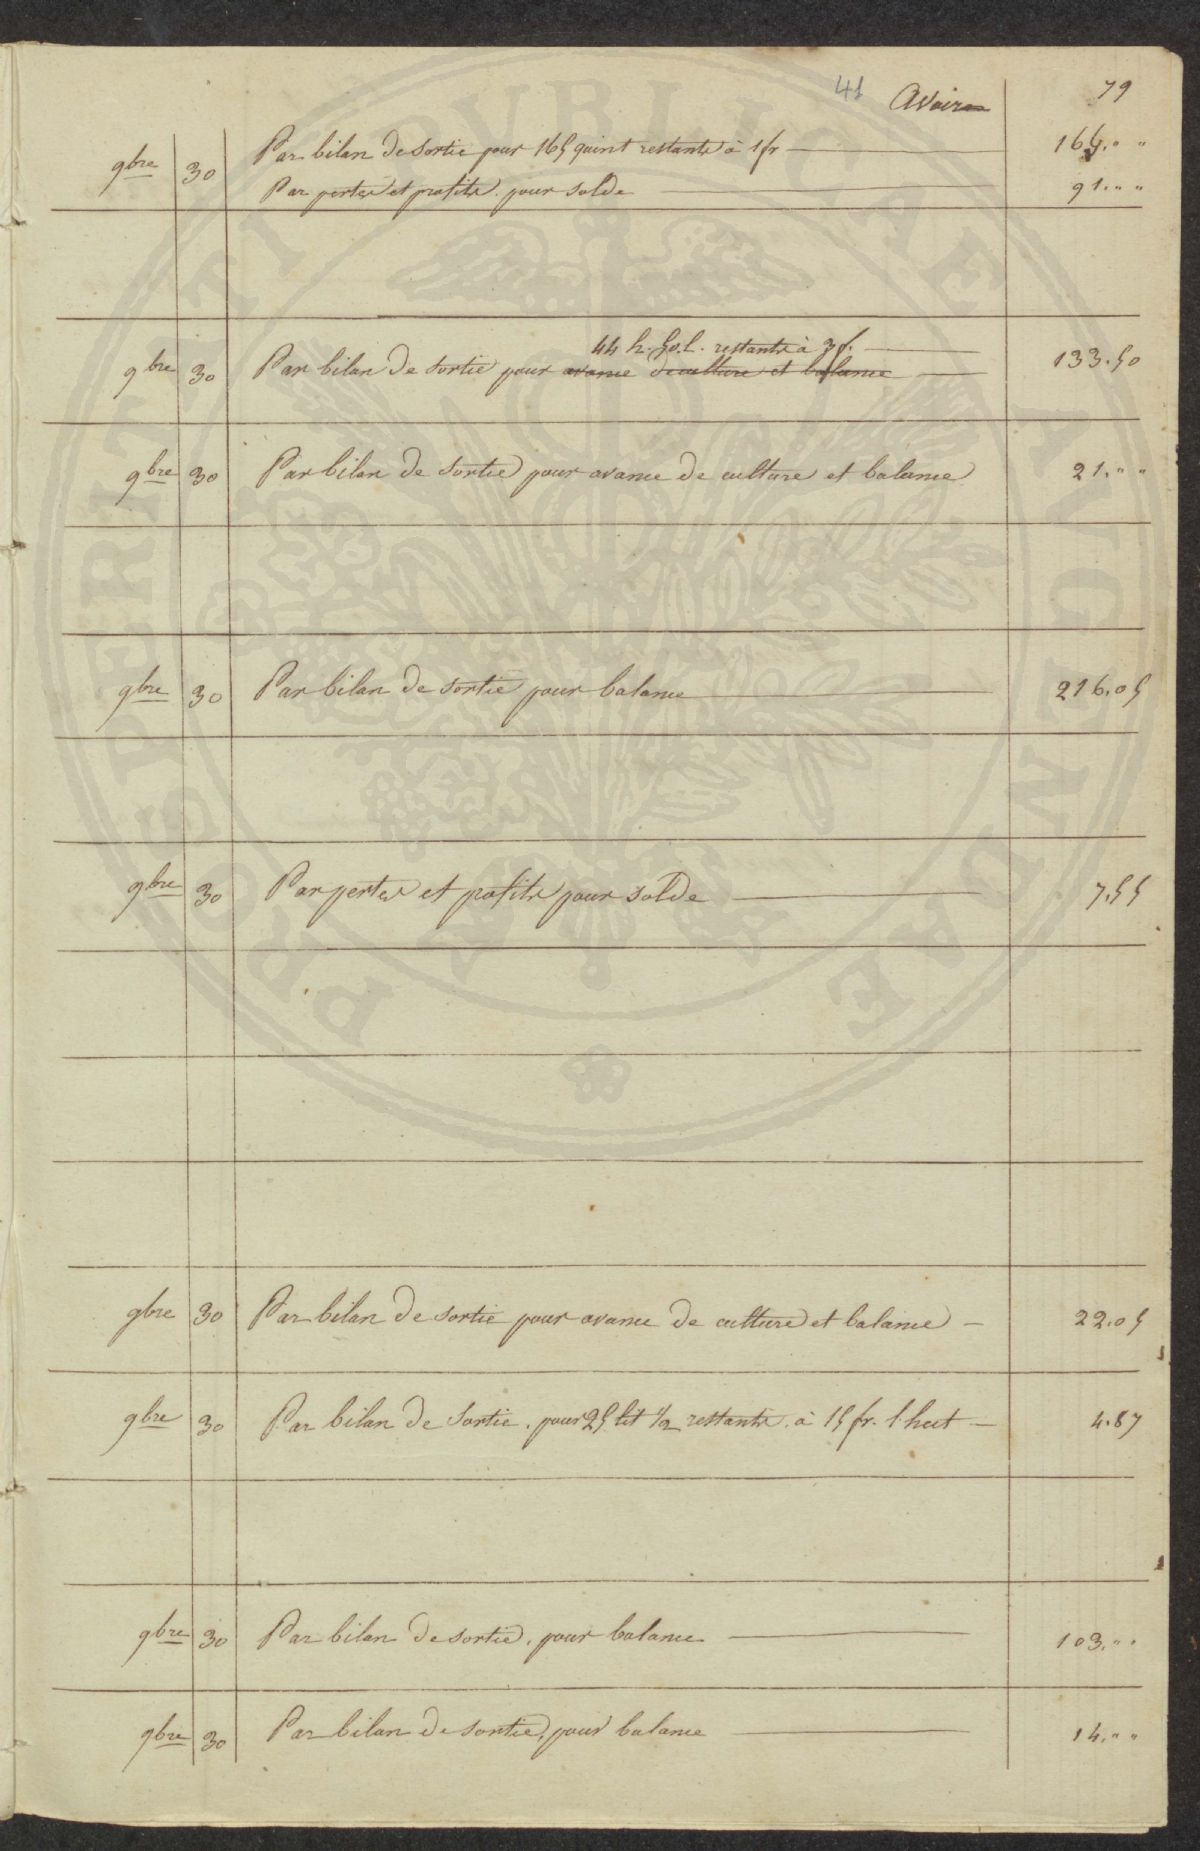 41 Avoir 79
9bre 30 Par bilan de sortie pour 165 quint restants à 1 fr 165. " "
Par pertes et profits pour solde 91. " "
44 h. 50. l. restants à 3 f.
9bre 30 Par bilan de sortie pour avance de culture et balance 133.50
9bre 30 Par bilan de sortie pour avance de culture et balance 21. " "
9bre 30 Par bilan de sortie pour balance 216.05
9bre 30 Par pertes et profits pour solde 7.55
9bre 30 Par bilan de sortie pour avance de culture et balance 22.05
9bre 30 Par bilan de sortie. pour 25 lit 1/2 restants. à 15 fr. l'hect 4.87
9bre 30 Par bilan de sortie, pour balance 103. " "
9bre 30 Par bilan de sortie, pour balance 14. " "
PROSPERITATI PVBLICAE AVGENDAE